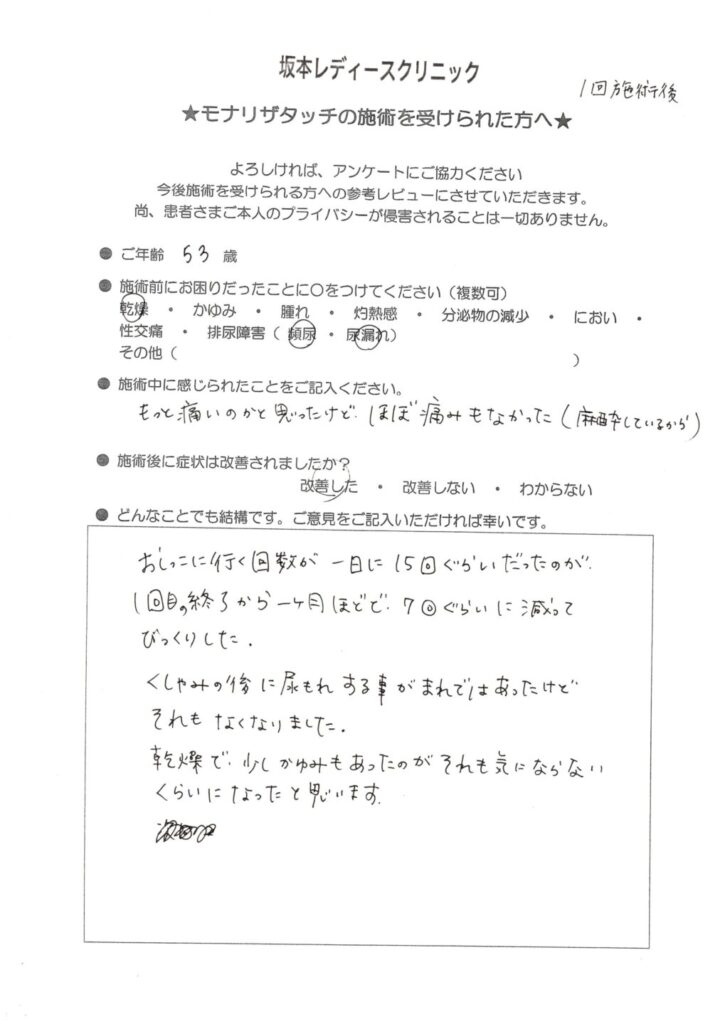 坂本レディースクリニック
1回施術後
★モナリザタッチの施術を受けられた方へ★
よろしければ、アンケートにご協力ください
今後施術を受けられる方への参考レビューにさせていただきます。
尚、患者さまご本人のプライバシーが侵害されることは一切ありません。
● ご年齢 53 歳
● 施術前にお困りだったことに〇をつけてください(複数可)
乾燥 ・ かゆみ ・ 腫れ ・ 灼熱感 ・ 分泌物の減少 ・ におい ・
性交痛 ・ 排尿障害(頻尿 ・ 尿漏れ)
その他( )
● 施術中に感じられたことをご記入ください。
もっと痛いのかと思ったけど、ほぼ痛みもなかった(麻酔しているから)
● 施術後に症状は改善されましたか?
改善した ・ 改善しない ・ わからない
● どんなことでも結構です。ご意見をご記入いただければ幸いです。
おしっこに行く回数が一日に15回ぐらいだったのが、
1回目の終了から一ヶ月ほどで、7回ぐらいに減って
びっくりした。
くしゃみの後に尿もれする事がまれではあったけど
それもなくなりました。
乾燥で、少しかゆみもあったのがそれも気にならない
くらいになったと思います。